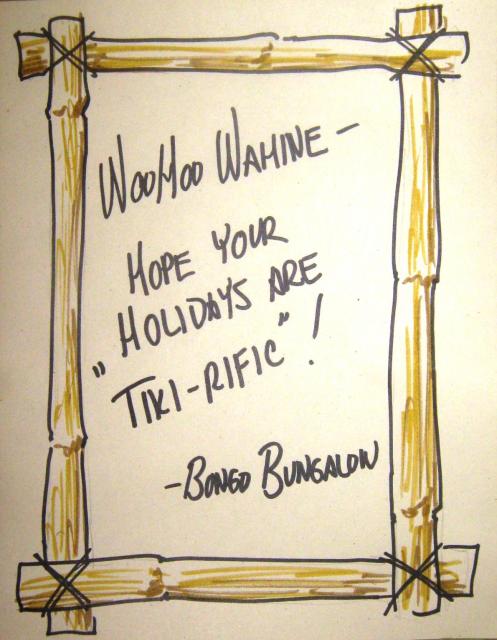 WOOHOO WAHINE –
HOPE YOUR
HOLIDAYS ARE
"TIKI-RIFIC"!
-BONGO BUNGALOW